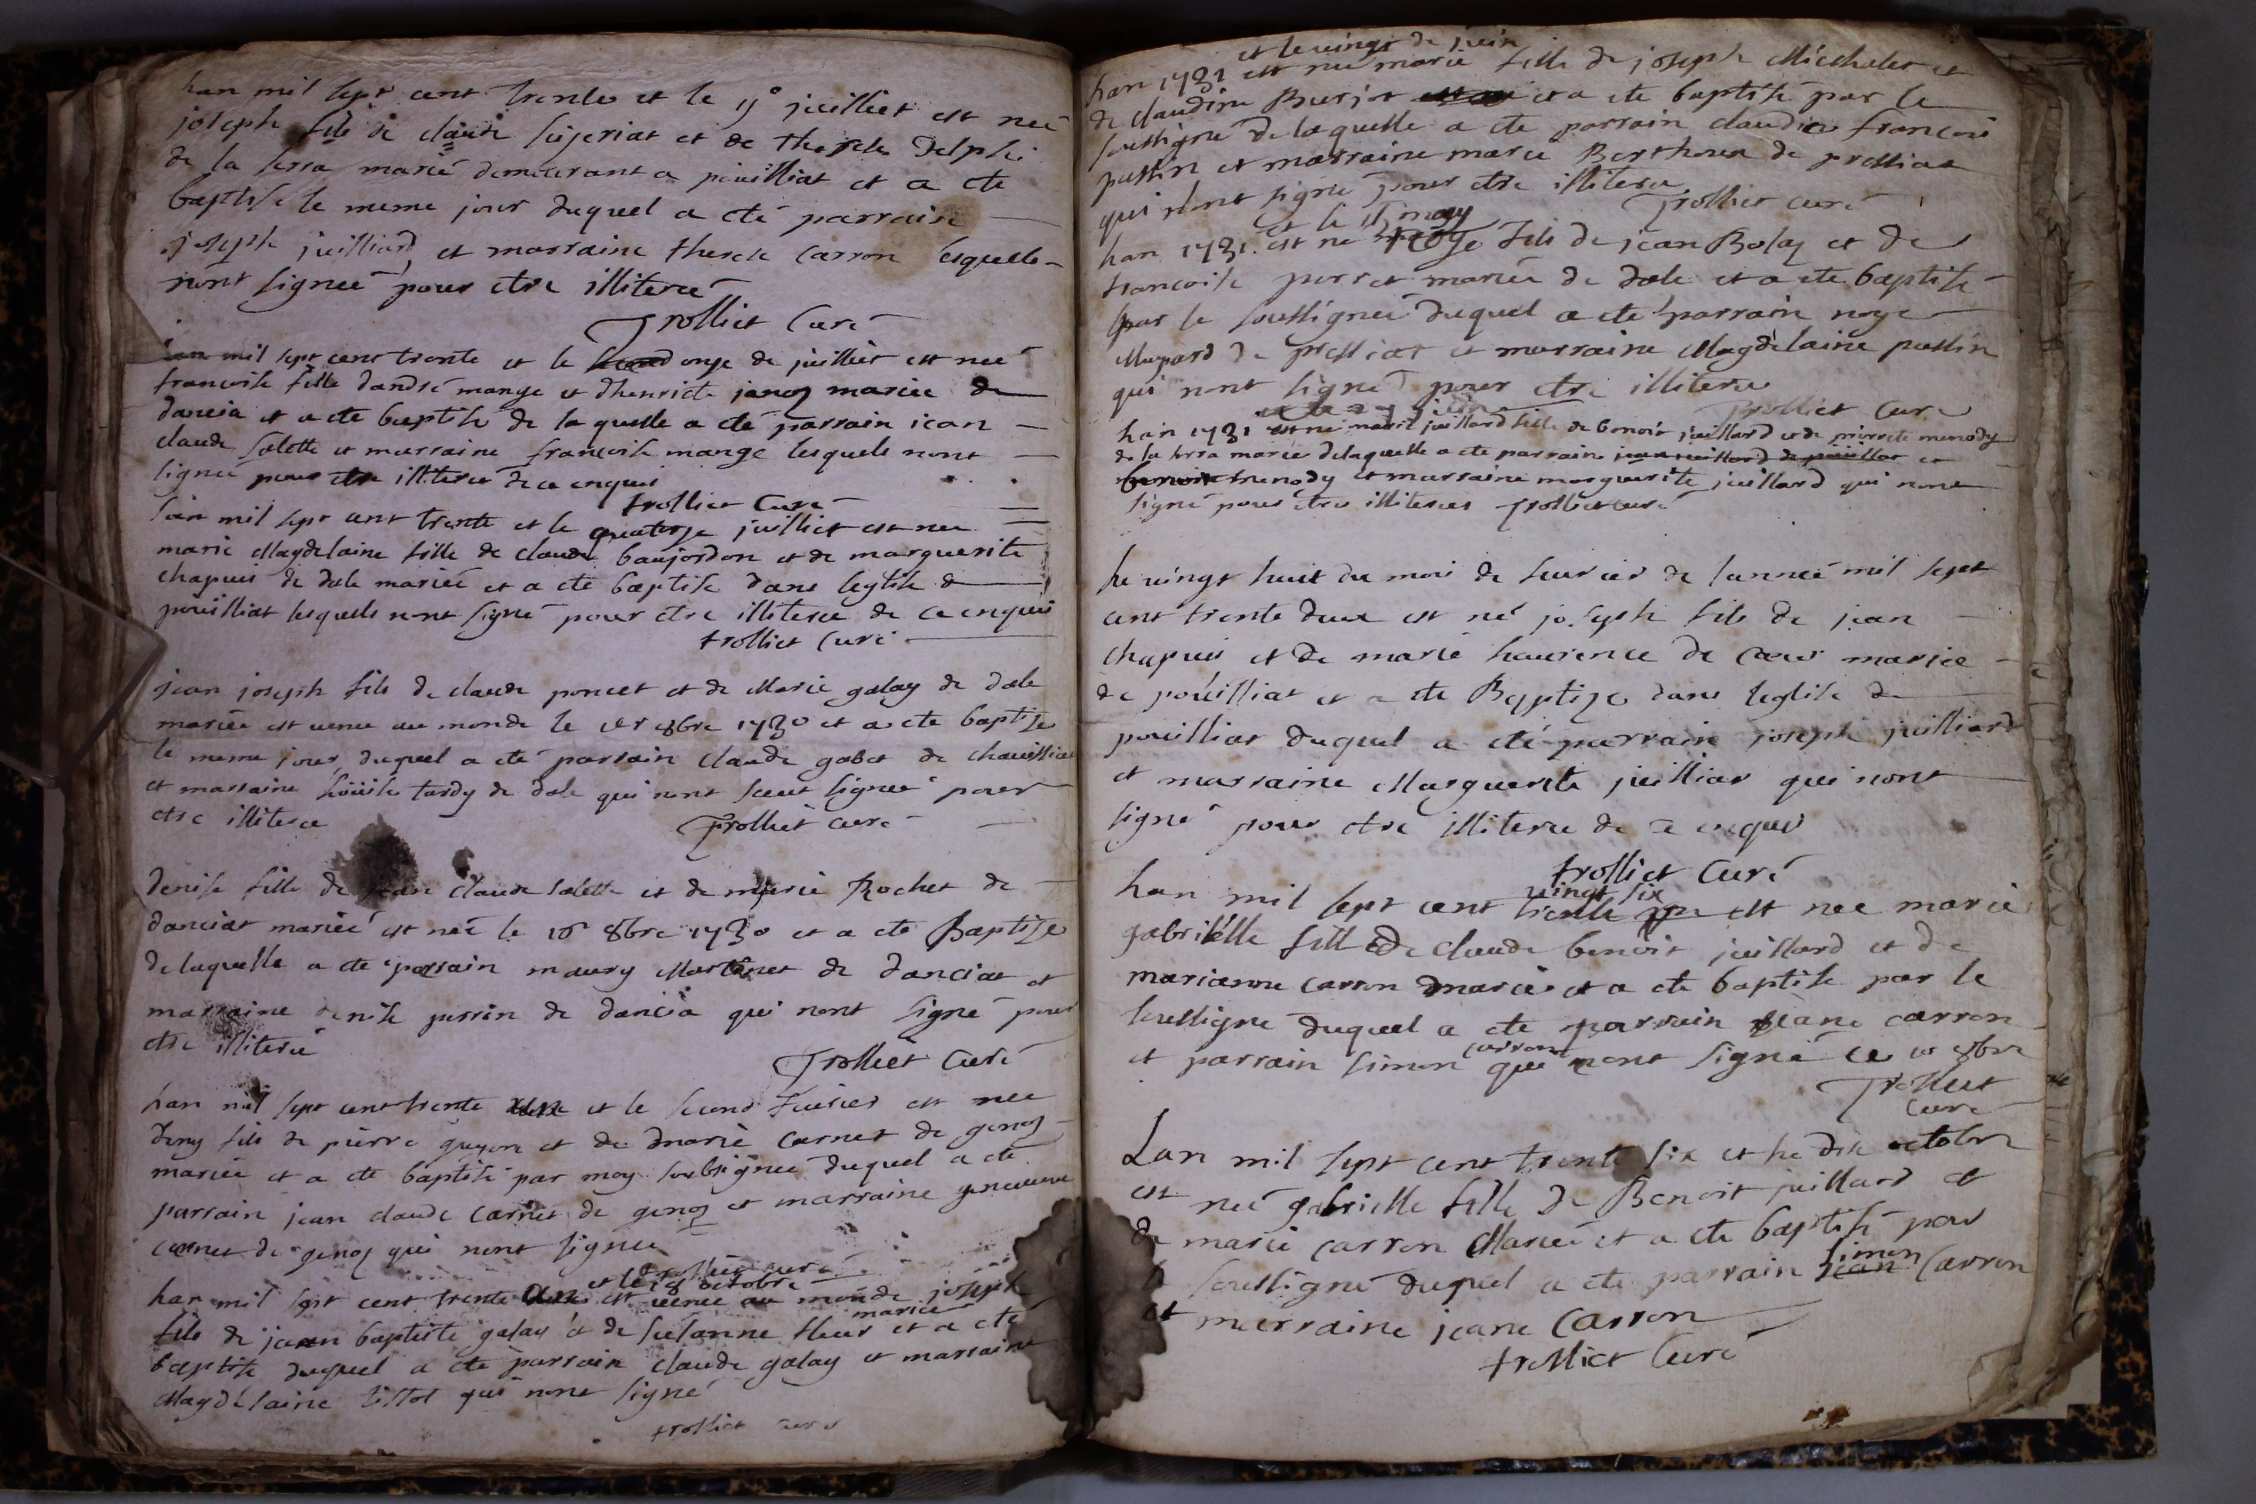 lan mil sept cent trente et le 11e juilliet est neé
joseph fils de claude sujeriat et de therese delphi
de la serra marié demeurant a poüilliat et a ete
baptise le meme jour duquel a eté parrain
joseph juilliard et marraine therese carron lesquels
nont signeé pour etre illitereé
Trolliet Curé
lan mil sept cent trente et le onze de juilliet est neé
francoise fille dandré mange et dhenriete janoz mariee de
dancia et a ete baptise de la quelle a eté parrain jean
claude salette et marraine francoise mange lesquels nont
signeé pour etre illitereé de ce enquis
trolliet Curé
lan mil sept cent trente et le quatorze juilliet est nee
marie Magdelaine fille de claude baujordon et de marguerite
chapuis de dale marieé et a ete baptise dans leglise de
poüilliat lesquels nont signé pour etre illitereé de ce enquis
trolliet Curé
jean joseph fils de claude poncet et de Marie galay de dale
marieé est venu au monde le 1er 8bre 1730 et a ete baptize
le meme jour, duquel a eté parrain claude gabet de chauilliat
et marraine loüise tardy de dale qui nont sceut signeé pour
etre illitere Trolliet curé
denise fille de jean claude salette et de marie Rochet de
danciat marieé est neé le 16 8bre 1730 et a ete Baptize
delaquelle a ete parrain maury Martinet de danciat et
marraine denise perrin de dancia qui nont signé pour
etre illitereé
Trolliet Curé
lan mil sept cent trente une et le second feurier est nee
deny fils de pierre guyon et de marie carnet de genoz
marieé et a ete baptisé par moy soubsigneé duquel a eté
parrain jean claude carnet de genoz et marraine geneuieue
carnet de genoz qui nont signeé
trolliet curé
et le 18 octobre
lan mil sept cent trente une est venu au monde joseph
mariée
fils de jean baptiste galay et de susanne fleur et a ete
baptise duquel a ete parrain claude galay et marraine
Magdelaine tissot qui nont signé
trolliet curé
et le vingt de juin
lan 1731 est neé marie fille de joseph Michalet et
de claudine Burjot et a ete baptisé par le
soussigné de laquelle a ete parrain claude francois
pussin et marraine marie Berthoux de pressiat
qui nont signé pour etre illitere
Trolliet curé
et le 15 may
lan 1731 est né roze fils de jean Bolay et de
francoise perret marieé de dale et a ete baptisé
par le soussigneé duquel a ete parrain roze
Mupard de pressiat et marraine Magdelaine pussin
qui nont signé pour etre illitere
Trolliet Curé
lan 1731 est né marie juillard fille de benoit juillard et de pierrete menody
de la serra marieé delaquelle a ete parrain jean juillard de poüillat et
benoit menody et marraine marguerite juillard qui nont
signé pour etre illiterees Trolliet curé
le vingt huit du mois de feurier de lanneé mil sept
cent trente deux est né joseph fils de jean
chapuis et de marie laurence de cœur mariee
de poüilliat et a ete Baptize dans leglise de
poüilliat duquel a eté parrain joseph juilliard
et marraine Marguerite juilliar qui nont
signé pour etre illitere de ce enquis
trolliet Curé
vingt six
lan mil sept cent trente est nee marie
gabrielle fille de claude benoit juillard et de
marianne carron marieé et a ete baptise par le
soussigne duquel a ete parrain jeane carron
carron
et parrain simon qui nont signé ce 10 8bre
Trolliet
Curé
Lan mil sept cent trente six et le dix octobre
est neé gabrielle fille de Benoit juillard et
de marie carron Marieé et a ete baptisé par
simon
le soussigné duquel a ete parrain jean Carron
et marraine jeane Carron
trolliet Curé